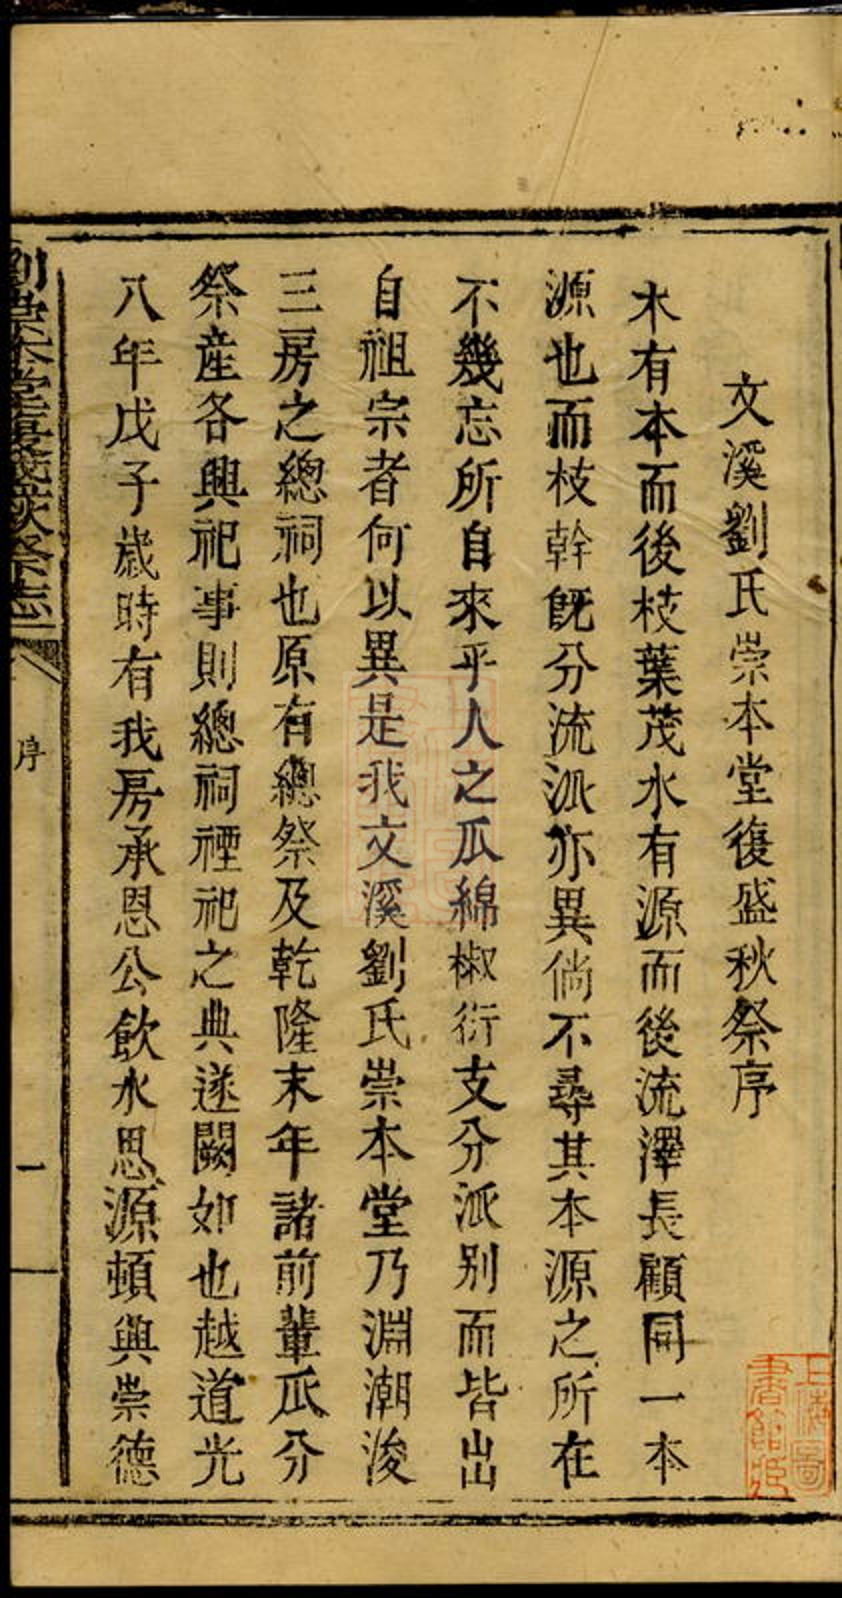 文溪劉氏崇本堂復盛秋祭序
木有本而後枝葉茂水有源而後流澤長顧同一本
源也而枝幹既分流派亦異倘不尋其本源之所在
不幾忘所自來乎人之瓜綿椒衍支分派別而皆出
自祖宗者何以異是我文溪劉氏崇本堂乃淵潮浚
三房之總祠也原有總祭及乾隆末年諸前輩瓜分
祭産各興祀事則總祠禋祀之典遂闕如也越道光
八年戊子歲時有我房承恩公飲水思源頓興崇德
序
一
上海圖書館藏